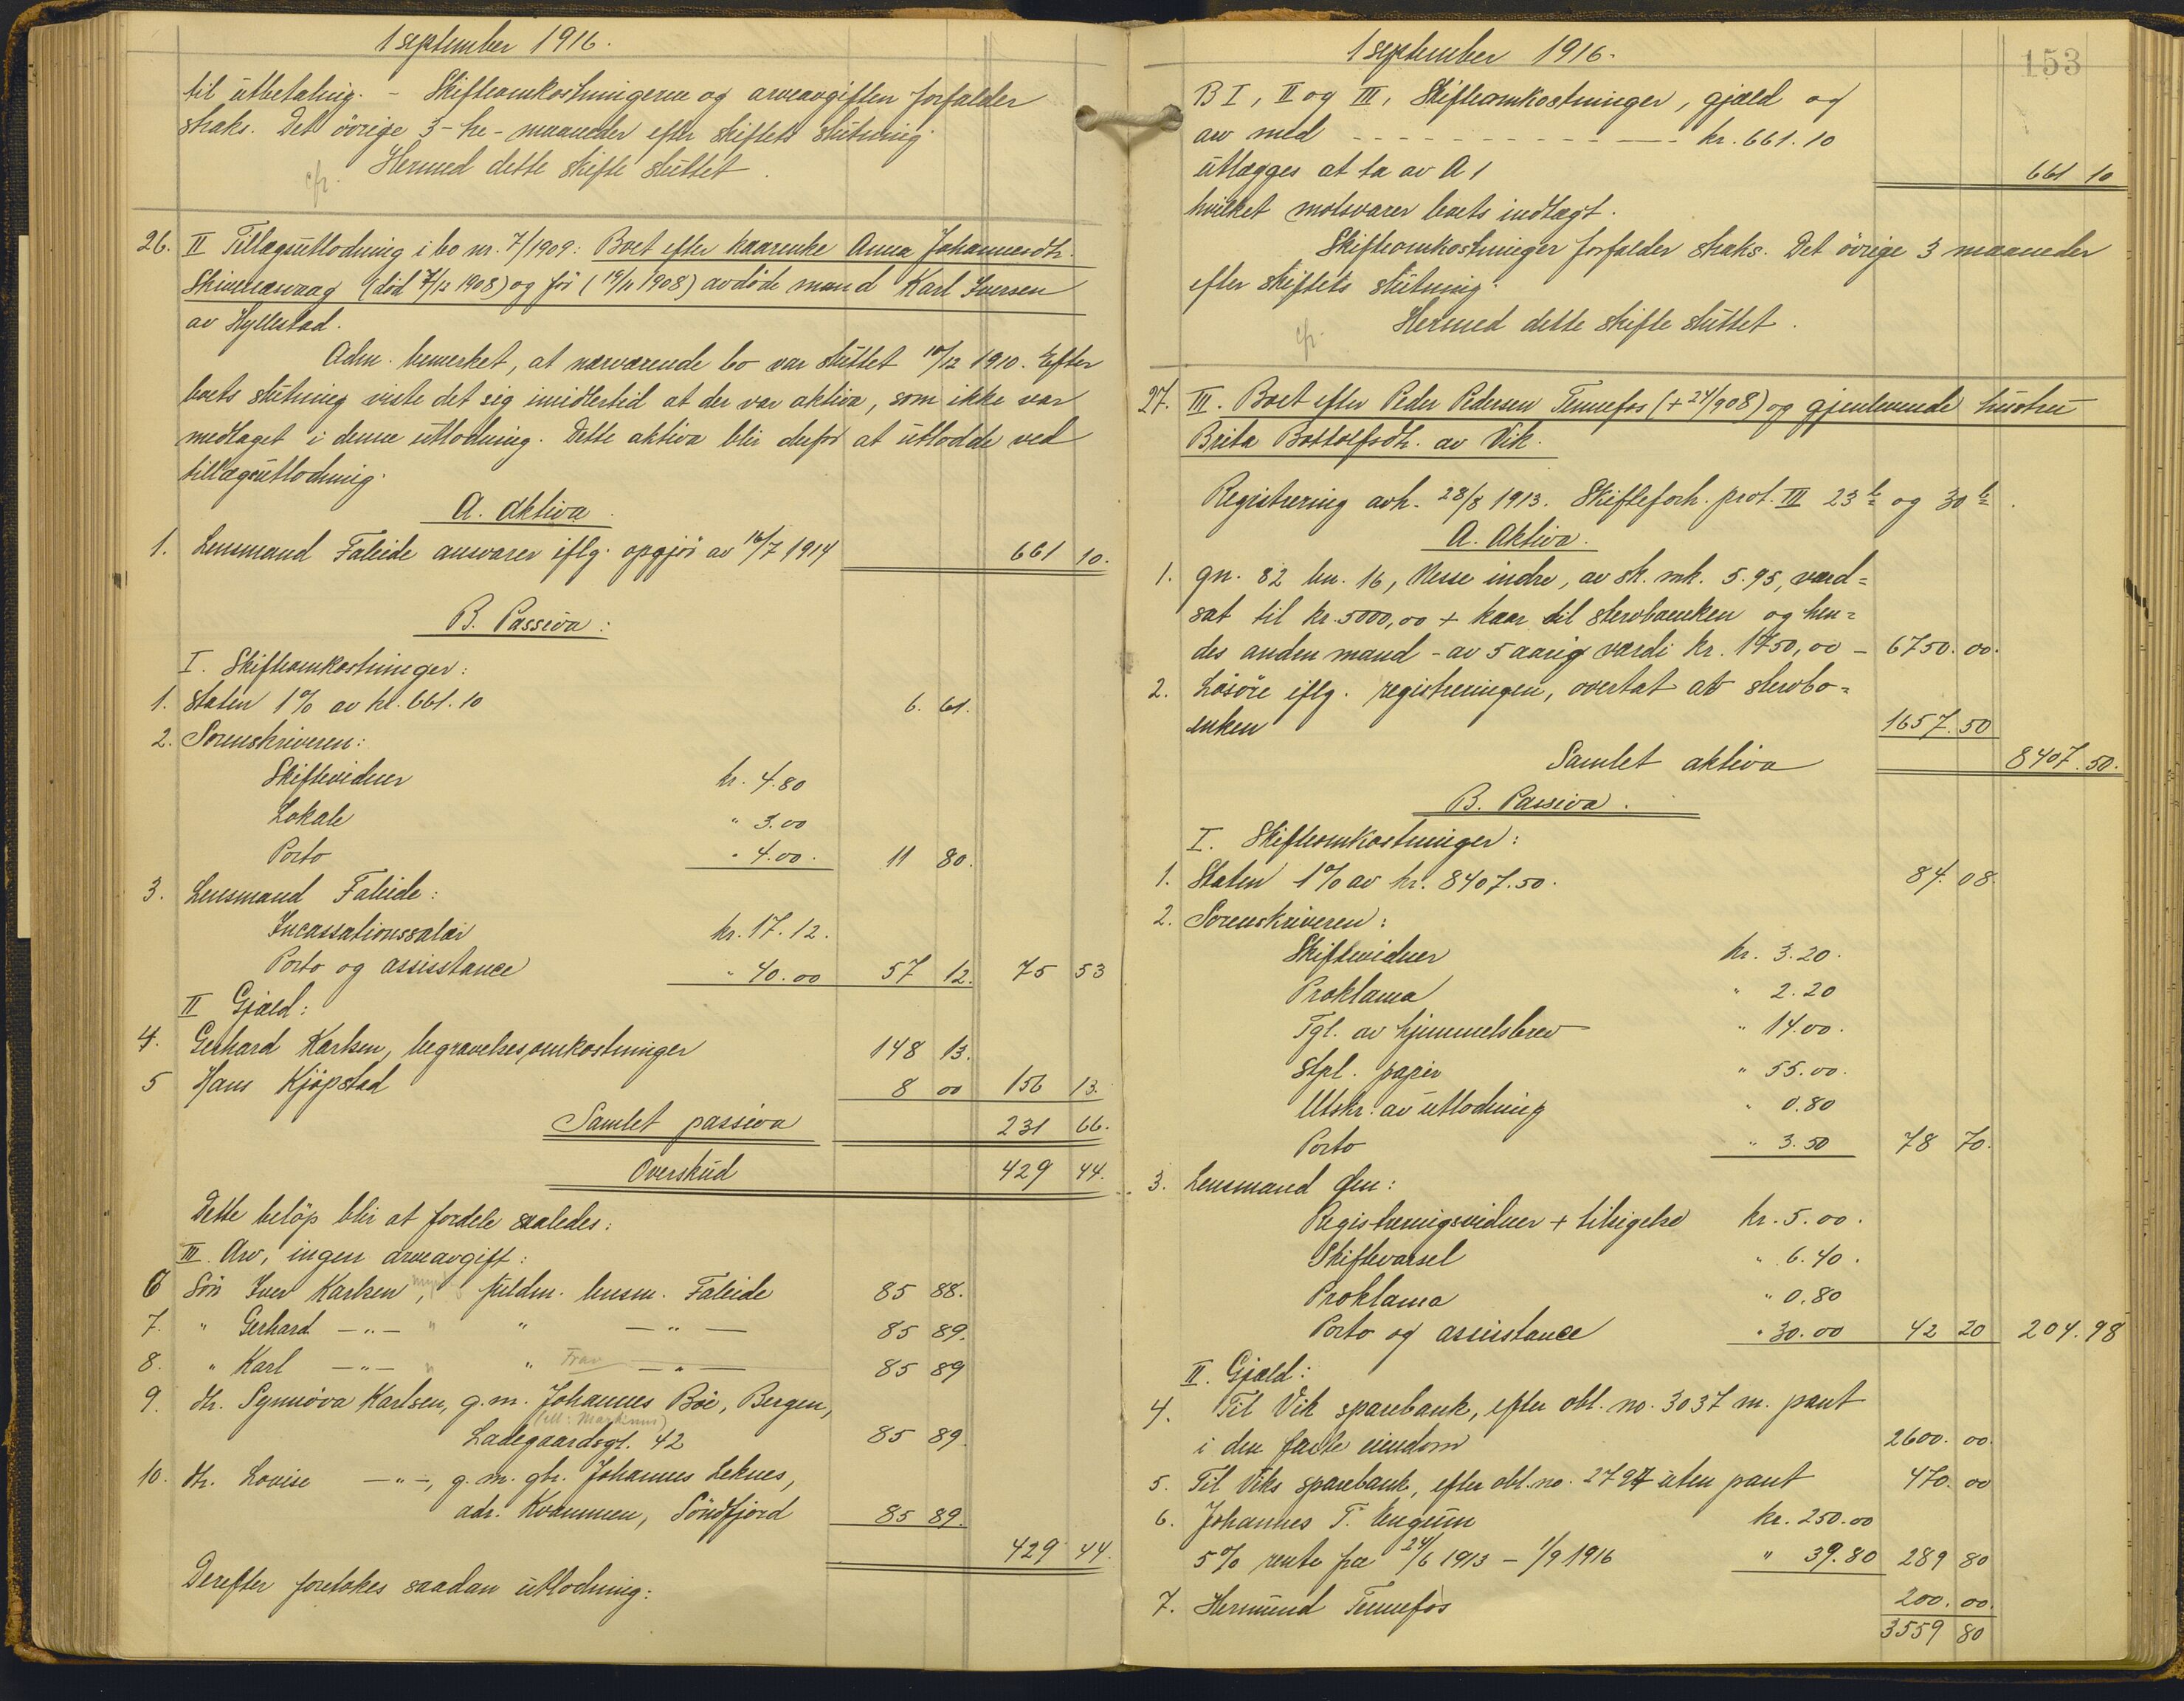 1 september 1916.
til utbetaling. - Skifteomkostningerne og arveavgiften forfalder
straks. Det övrige 3 - tre - maaneder efter skiftets slutning.
Hermed dette skifte sluttet.
cfr.
26. II Tillægsutlodning i bo nr. 7/1909: Boet efter kaarenke Anna Johannesdtr.
Skivenesvaag (död 7/12 1908) og för (19/11 1908) avdöde mand Karl Iversen
av Hyllestad.
Adm. bemerket, at nærværende bo var sluttet 10/12 1910. Efter
boets slutning viste det sig imidlertid at der var aktiva, som ikke var
medtaget i denne utlodning. Dette aktiva blir derfor at utlodde ved
tillægsutlodning.
A. Aktiva.
1. Lensmand Faleide ansvarer iflg. opgjör av 16/7 1914 661 10.
B. Passiva:
I. Skifteomkostninger:
1. Staten 1% av kr. 661.10 6. 61.
2. Sorenskriveren:
Skiftevidner kr. 4.80
Lokale " 3.00
Porto " 4.00. 11 80.
3. Lensmand Faleide:
Incassationssalær kr. 17.12.
Porto og assisstance " 40.00 57 12. 75 53
II Gjæld:
4. Gerhard Karlsen, begravelsesomkostninger 148 13.
5 Hans Kjöpstad 8 00 156 13.
Samlet passiva 231 66.
Overskud 429 44.
Dette belöp blir at fordele saaledes:
III. Arv, ingen arveavgift:
6 Sön Iver Karlsen, fuldm. lensm. Faleide 85 88.
7. " Gerhard -"- " " -"- 85 89.
8. " Karl -"- " " Frav -"- 85 89
9. dtr. Synnöva Karlsen, g.m. Johannes Böe, Bergen,
(ell: Markinus)
Ladegaardsgt. 42 85 89.
10. dtr. Lovise -"-, g.m. gbr. Johannes Leknes,
adr. Kvammen, Söndfjord 85 89.
429 44.
Derefter foretokes saadan utlodning:
1 september 1916.
153
B I, II og III, Skifteomkostninger, gjæld og
arv med - - - - - - - - - - kr. 661.10
utlægges at ta av A 1 661 10
hvilket motsvarer boets indtægt.
Skifteomkostninger forfalder straks. Det övrige 3 maaneder
efter skiftets slutning.
Hermed dette skifte sluttet.
cfr.
27. III. Boet efter Peder Pedersen Tennefos (+ 24/908) og gjenlevende hustru
Brita Bottolfsdtr. av Vik.
Registrering avh. 28/8 1913. Skifteforh. prot. III 23 b og 30 b.
A. Aktiva.
1. gn. 82 bn. 16, Nesse indre, av sk. mk. 5.95, værd=
sat til kr. 5000,00 + kaar til stervboenken og hen=
des anden mand - av 5 aarig værdi kr. 1750,00 - 6750.00.
2. Lösöre iflg. registreringen, overtat av stervbo=
enken 1657.50
Samlet aktiva 8407.50.
B. Passiva.
I. Skifteomkostninger:
1. Staten 1% av kr. 8407.50. 84.08.
2. Sorenskriveren:
Skiftevidner kr. 3.20.
Proklama " 2.20
Tgl. av hjemmelsbrev " 14.00.
Stpl. papir " 55.00.
Utskr. av utlodning " 0.80
Porto " 3.50 78 70.
3. Lensmand Øen:
Registreringsvidner + tilsigelse kr. 5.00.
Skiftevarsel " 6.40.
Proklama " 0.80
Porto og assisstance " 30.00 42 20 204.98
II. Gjæld:
4. Til Vik sparebank, efter obl. no. 3037 m. pant
i den faste eiendom 2600.00.
5. Til Viks sparebank, efter obl. no. 2797 uten pant 470.00
6. Johannes T. Engum kr. 250.00
5% rente fra 24/6 1913 - 1/9 1916 " 39.80 289 80
7. Hermund Tennefos 200.00.
3559 80